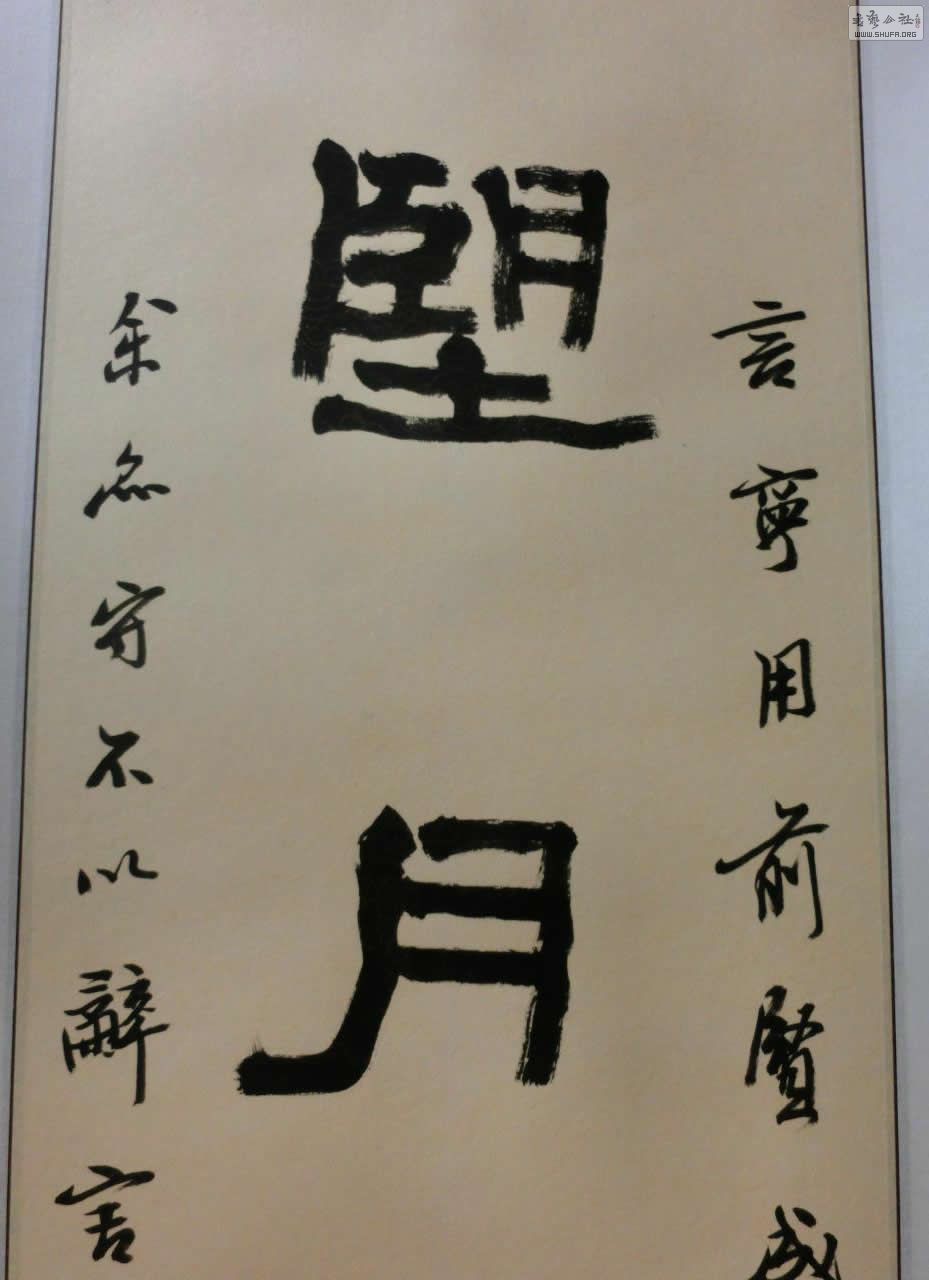 言寧用前賢成
朢月
余每守不以辭害
書藝公社
WWW.SHUFA.ORG